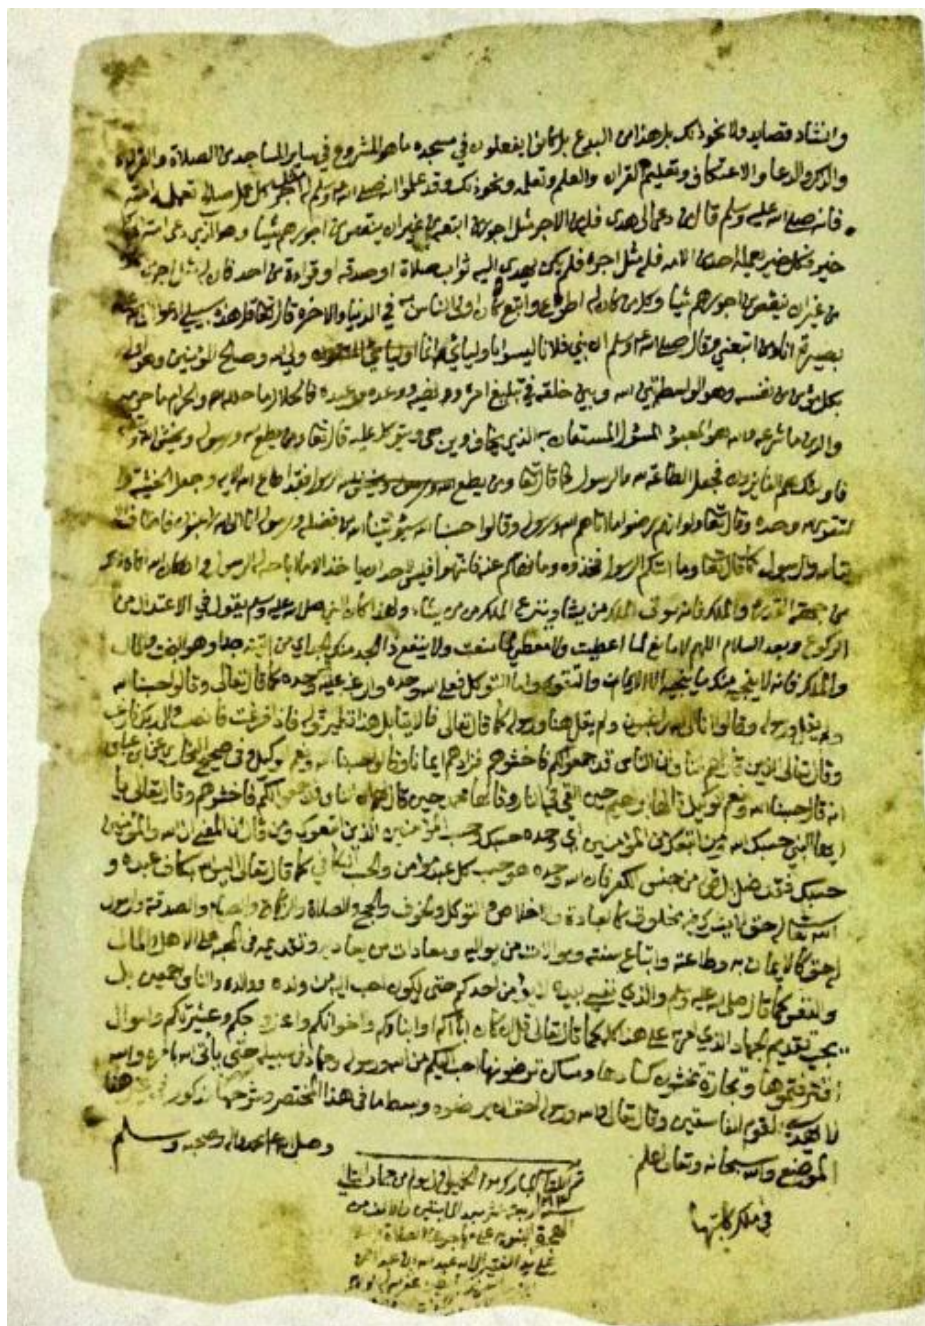 وانشاد قصايد ولا نحو ذلك بل هذا من البدع بل كانوا يفعلون في مسجده ما هو المشروع في ساير المساجد من الصلاة والقراءة
والذكر والدعا والاعتكاف وتعليم القران والعلم وتعلمه ونحو ذلك وقد علموا ان النبي صلى الله عليه وسلم له مثل اجر كل عمل صالح تعمله امته
فانه صلى الله عليه وسلم قال من دعى الى هدى فله من الاجر مثل اجور من اتبعه من غير ان ينقص من اجورهم شيئا وهو الذي دعى امته الى كل
خير وكل خير يعمله احد من الامة فله مثل اجره فلم يكن يهدى اليه ثواب صلاة او صدقة او قراءة من احد فان له مثل اجر
من غير ان ينقص من اجورهم شيا وكل من كان له اطوع واتبع كان اولى الناس به في الدنيا والاخرة قال تعالى قل هذه سبيلي ادعوا الى الله على
بصيرة انا ومن اتبعني وقال صلى الله عليه وسلم ان بني فلان ليسوا با وليائي انما وليي الله وصالح المؤمنين وهو اولى
بكل مؤمن من نفسه وهو الواسطة بين الله وبين خلقه في تبليغ امره ونهيه ووعده ووعيده فالحلال ما حلله والحرام ما حرمه
والدين ما شرعه والله هو المعبود المسؤل المستعان به الذي يخاف ويرجى ويتوكل عليه قال تعالى ومن يطع الله ورسوله ويخش الله ويتقه
فاولئك هم الفايزون فجعل الطاعة لله والرسول كما قال تعالى ومن يطع الرسول فقد اطاع الله وجعل الخشية و
التقوى لله وحده وقال تعالى ولو انهم رضوا ما اتاهم الله ورسوله وقالوا حسبنا الله سيؤتينا الله من فضله ورسوله انا الى الله راغبون فاضاف
لله والرسول كما قال تعالى وما اتاكم الرسول فخذوه وما نهاكم عنه فانتهوا فليس لاحد ان ياخذ الا ما اباحه الرسول وان كان الله اتاه ذلك
من جهة القدرة والملك فانه يؤتي الملك من يشاء وينزع الملك ممن يشاء ولهذا كان النبي صلى الله عليه وسلم يقول في الاعتدال من
الركوع وبعد السلام اللهم لا مانع لما اعطيت ولا معطي لما منعت ولا ينفع ذا الجد منك الجد اي من اتيته جدا وهو البخت والمال
والملك فانه لا ينجيه منك ما ينجيه الا الايمان والتقوى واما التوكل فعلى الله وحده والرغبة عليه وحده كما قال تعالى وقالوا حسبنا الله
ولم يقل ورسوله وقالوا انا الى الله راغبون ولم يقل هنا ورسوله كما قال تعالى فاذا فرغت فانصب والى ربك فارغب
وقال تعالى الذين قال لهم الناس ان الناس قد جمعوا لكم فاخشوهم فزادهم ايمانا وقالوا حسبنا الله ونعم الوكيل وفي صحيح البخاري عن ابن عباس
انه قال حسبنا الله ونعم الوكيل قالها ابراهيم حين القي في النار وقالها محمد حين قال لهم الناس ان الناس قد جمعوا لكم فاخشوهم وقال تعالى يا
ايها النبي حسبك الله ومن اتبعك من المؤمنين اي وحده حسبك وحسب المؤمنين الذين اتبعوك ومن قال ان المعنى ان الله والمؤمنين
حسبك فقد ضل بل قوله من جنس الكفر فان الله وحده هو حسب كل عبد مؤمن والحسب الكافي كما قال تعالى اليس الله بكاف عبده و
الله تعالى له حق لا يشركه فيه مخلوق كالعبادة والاخلاص والتوكل والخوف والحج والصلاة والزكاة والصيام والصدقة والرسول
له حق كالايمان به وطاعته واتباع سنته وموالات من يواليه ومعادات من يعاديه وتقديمه في المحبة على الاهل والمال
والنفس كما قال صلى الله عليه وسلم والذي نفسي بيده لا يؤمن احدكم حتى اكون احب اليه من ولده ووالده والناس اجمعين بل
يجب تقديم الجهاد الذي امر به على هذا كله كما قال تعالى قل ان كان اباؤكم وابناؤكم واخوانكم وازواجكم وعشيرتكم واموال
اقترفتموها وتجارة تخشون كسادها ومساكن ترضونها احب اليكم من الله ورسوله وجهاد في سبيله حتى ياتي الله بامره والله
لا يهدي القوم الفاسقين وقال تعالى والله ورسوله احق ان يرضوه وبسط ما في هذا المختصر وشرحها مذكور في غير هذا
الموضع والله سبحانه وتعالى اعلم
وصلى الله على محمد واله وصحبه وسلم
في ملك كاتبها